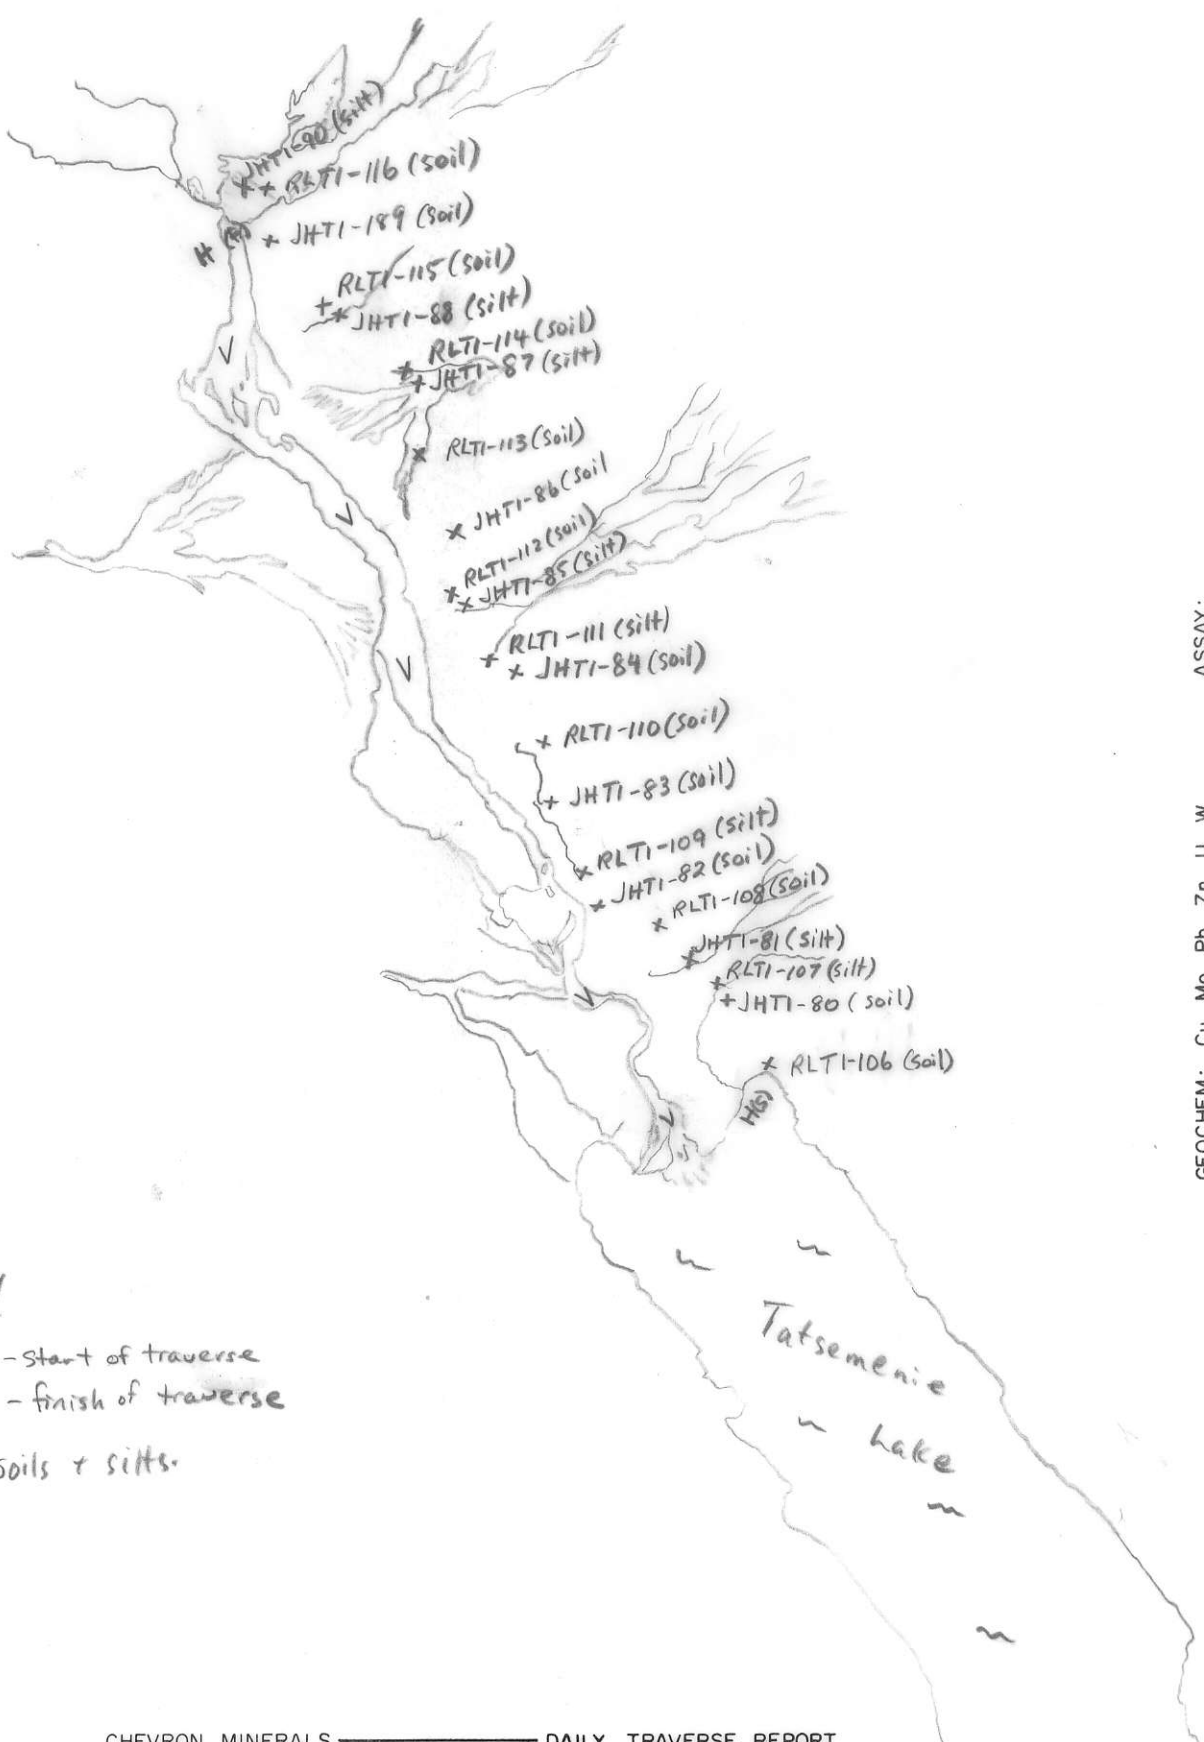 JHT1-90 (silt)
RLT1-116 (soil)
JHT1-189 (soil)
H
RLT1-115 (soil)
JHT1-88 (silt)
RLT1-114 (soil)
JHT1-87 (silt)
RLT1-113 (soil)
JHT1-86 (soil
RLT1-112 (soil)
JHT1-85 (silt)
RLT1-111 (silt)
JHT1-84 (soil)
RLT1-110 (soil)
JHT1-83 (soil)
RLT1-109 (silt)
JHT1-82 (soil)
RLT1-108 (soil)
JHT1-81 (silt)
RLT1-107 (silt)
JHT1-80 (soil)
RLT1-106 (soil)
H(S)
Tatsemenie
Lake
- Start of traverse
- finish of traverse
soils + silts.
GEOCHEM: Cu Mo Pb Zn U W ASSAY:
CHEVRON MINERALS DAILY TRAVERSE REPORT